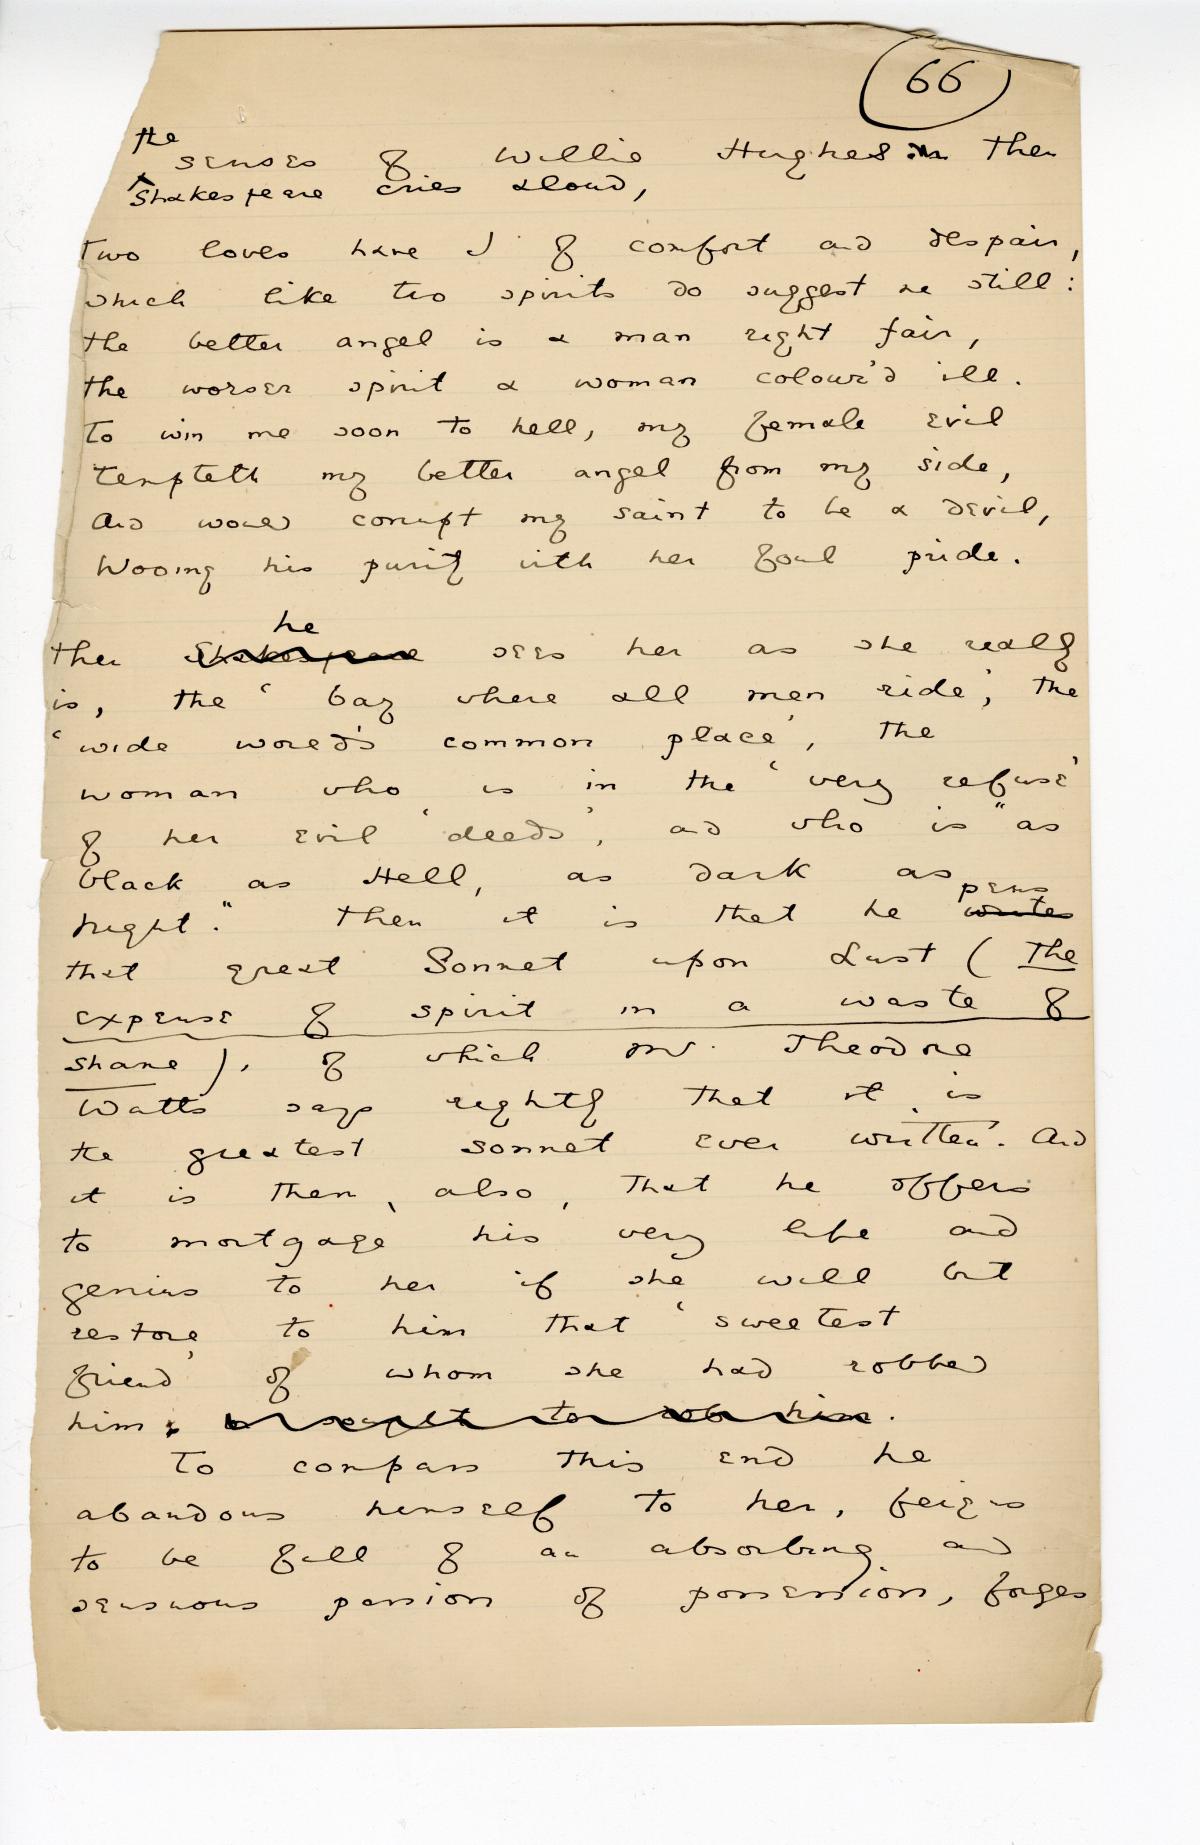 66
the
senses of Willie Hughes. Then
Shakespeare cries aloud,
Two loves have I of comfort and despair,
which like two spirits do suggest me still:
the better angel is a man right fair,
the worser spirit a woman colour'd ill.
To win me soon to hell, my female evil
tempteth my better angel from my side,
And would corrupt my saint to be a devil,
Wooing his purity with her foul pride.
he
Then Shakespeare sees her as she really
is, the 'bay where all men ride', the
'wide world's common place', the
woman who is in the 'very refuse'
of her evil 'deeds', and who is "as
black as Hell, as dark as
pens
night." Then it is that he writes
that great Sonnet upon Lust (The
expense of spirit in a waste of
shame), of which Mr. Theodore
Watts says rightly that it is
the greatest sonnet ever written. And
it is then, also, that he offers
to mortgage his very life and
genius to her if she will but
restore to him that 'sweetest
friend' of whom she had robbed
him, or sought to rob him.
To compass this end he
abandons himself to her, feigns
to be full of an absorbing and
sensuous passion of possession, forges